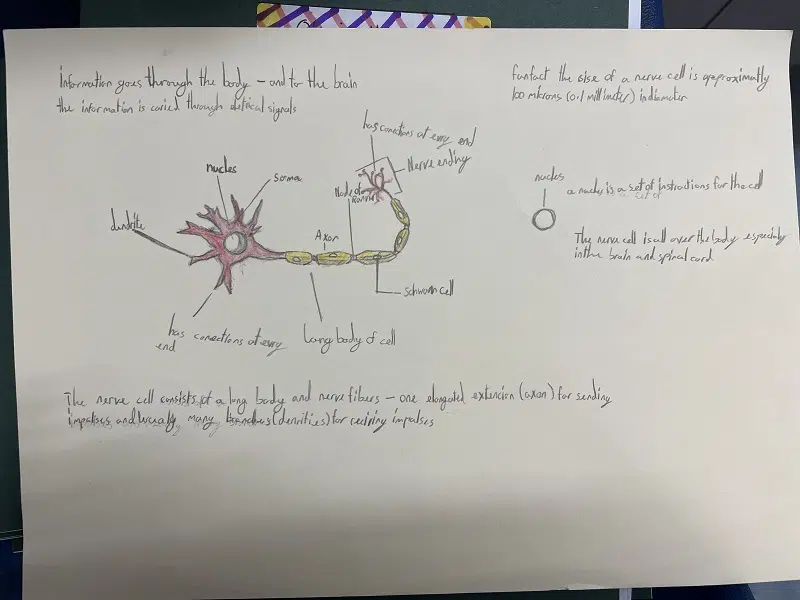 information goes through the body – and to the brain
the information is caried through eletrical signals
funfact the size of a nerve cell is approximatly
100 mikrons (0.1 millimeter) in diamater
has conections at evry end
Nerve ending
nucles
somea
Node of
ranvier
dendrite
Axon
schwann cell
has conections at evry
end
Long body of cell
nucles
a nucles is a set of instructions for the cell
The nerve cell is all over the body especialy
in the brain and spinal cord
The nerve cell consists of a long body and nerve fibers – one elongated extencion (axon) for sending
impulses and usually many branches (denrities) for reciring impulses